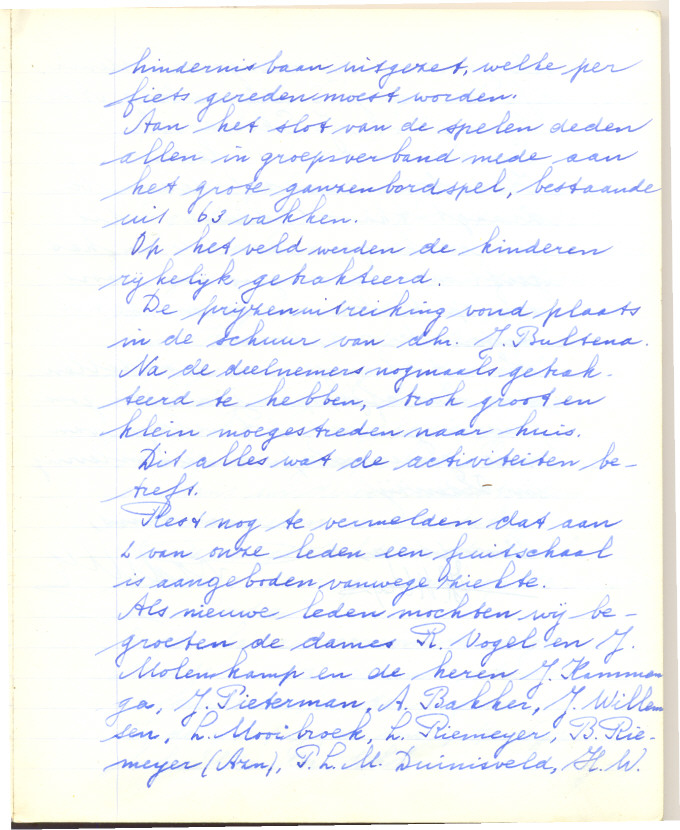 hindernisbaan uitgezet, welke per
fiets gereden moest worden.
Aan het slot van de spelen deden
allen in groepsverband mede aan
het grote ganzenbordspel, bestaande
uit 63 vakken.
Op het veld werden de kinderen
rijkelijk getrakteerd.
De prijzenuitreiking vond plaats
in de schuur van dhr. J. Bultena.
Na de deelnemers nogmaals getrak-
teerd te hebben, trok groot en
klein moegestreden naar huis.
Dit alles wat de activiteiten be-
treft.
Rest nog te vermelden dat aan
2 van onze leden een fruitschaal
is aangeboden vanwege ziekte.
Als nieuwe leden mochten wij be-
groeten de dames R. Vogel en J.
Molenkamp en de heren J. Kamman
ga, J. Pieterman, A. Bakker, J. Willem
sen, L. Mooibroek, L. Riemeyer, B. Rie-
meyer (Azn), P.L.M. Duinisveld, H.W.